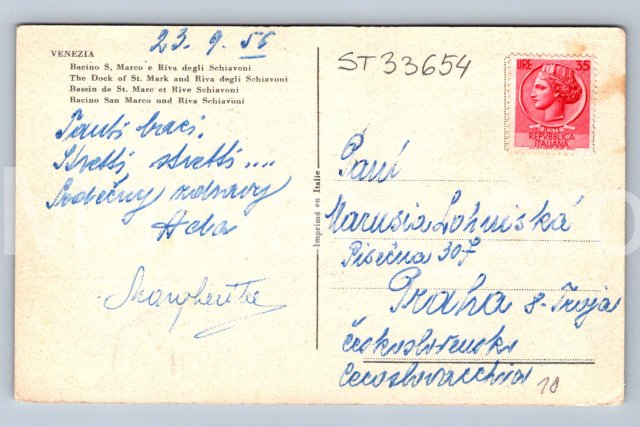 VENEZIA
Bacino S. Marco e Riva degli Schiavoni
The Dock of St. Mark and Riva degli Schiavoni
Bassin de St. Marc et Rive Schiavoni
Bacino San Marco und Riva Schiavoni
23.9.56
Tanti baci.
Stretti stretti....
Srdečny zdravy
Ada
Margherita
Imprimé en Italie
ST33654
LIRE 35
POSTE
REPVBBLICA
ITALIANA
Paní
Marusia Lohniská
Písečna 307
Praha 8-Troja
Československo
Cecoslovacchia
10